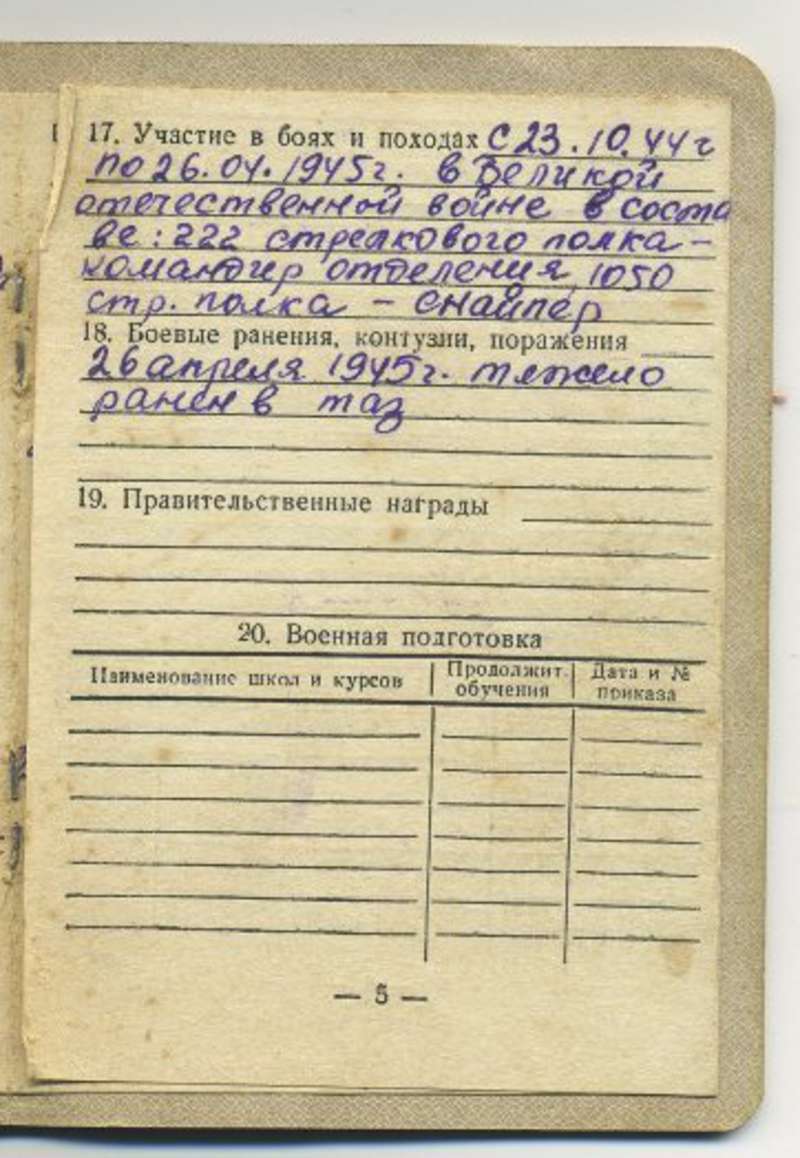 17. Участие в боях и походах С 23.10.44г
по 26.04.1945г. в Великой
отечественной войне в соста
ве: 222 стрелкового полка -
командир отделения, 1050
стр. полка - снайпер
18. Боевые ранения, контузии, поражения
26 апреля 1945г. тяжело
ранен в таз
19. Правительственные награды
20. Военная подготовка
Наименование школ и курсов
Продолжит. обучения
Дата и № приказа
— 5 —